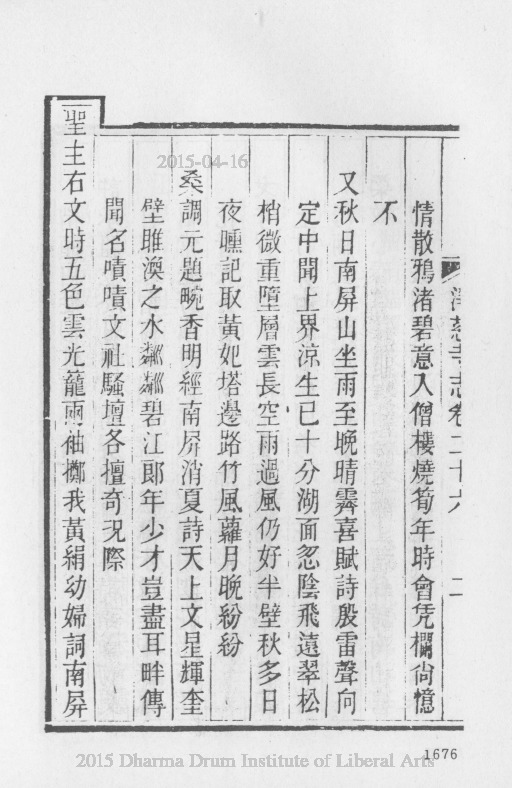 淨慈寺志卷二十六 二
情散鴉渚碧意入僧樓燒筍年時會凭欄尙憶
不
又秋日南屏山坐雨至晚晴霽喜賦詩殷雷聲向
定中聞上界涼生已十分湖面忽陰飛遠翠松
梢微重墮層雲長空雨過風仍好半壁秋多日
夜曛記取黃妃塔邊路竹風蘿月晚紛紛
桑調元題畹香明經南屏消夏詩天上文星輝奎
壁雎渙之水粼粼碧江郎年少才豈盡耳畔傳
聞名嘖嘖文社騷壇各擅奇況際
聖主右文時五色雲光籠兩袖擲我黃絹幼婦詞南屏
2015-04-16
1676
2015 Dharma Drum Institute of Liberal Arts